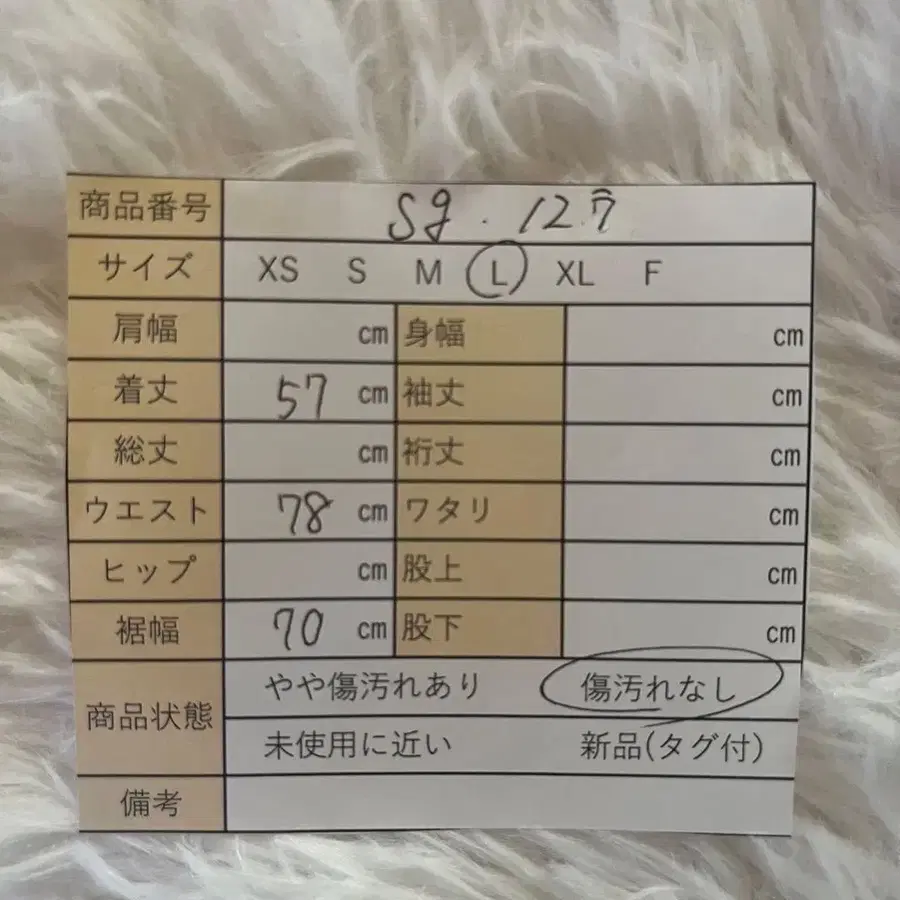 商品番号 Sg. 127
サイズ XS S M L XL F
肩幅 cm 身幅 cm
着丈 57 cm 袖丈 cm
総丈 cm 裄丈 cm
ウエスト 78 cm ワタリ cm
ヒップ cm 股上 cm
裾幅 70 cm 股下 cm
商品状態 やや傷汚れあり 傷汚れなし
未使用に近い 新品(タグ付)
備考